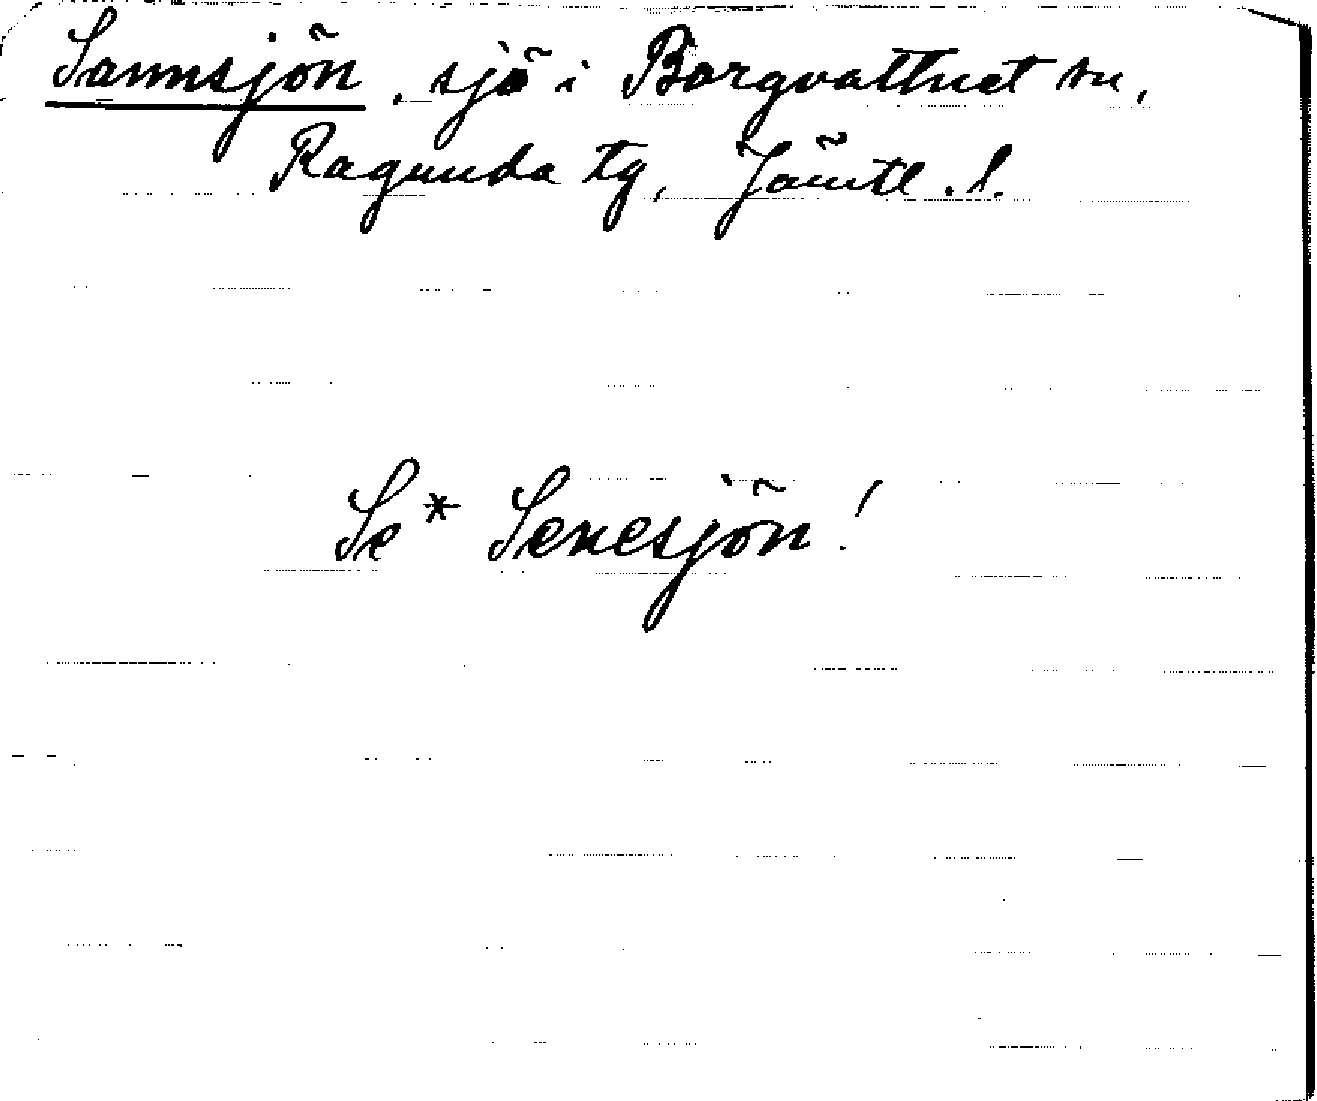 Sannsjön, sjö i Borgvattnet sn,
Ragunda tg, Jämtl. l.
Se * Senesjön!